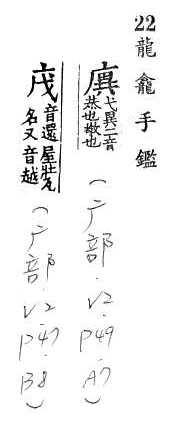 22龍龕手鑑
廙弋異二音恭也敬也(广部.V2.P49.A7)
戍音還屋牡瓦名又音越(广部.V2.P47.B8)